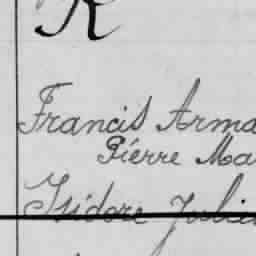 R
Francis Arma
Pierre Ma
Isidore Julie